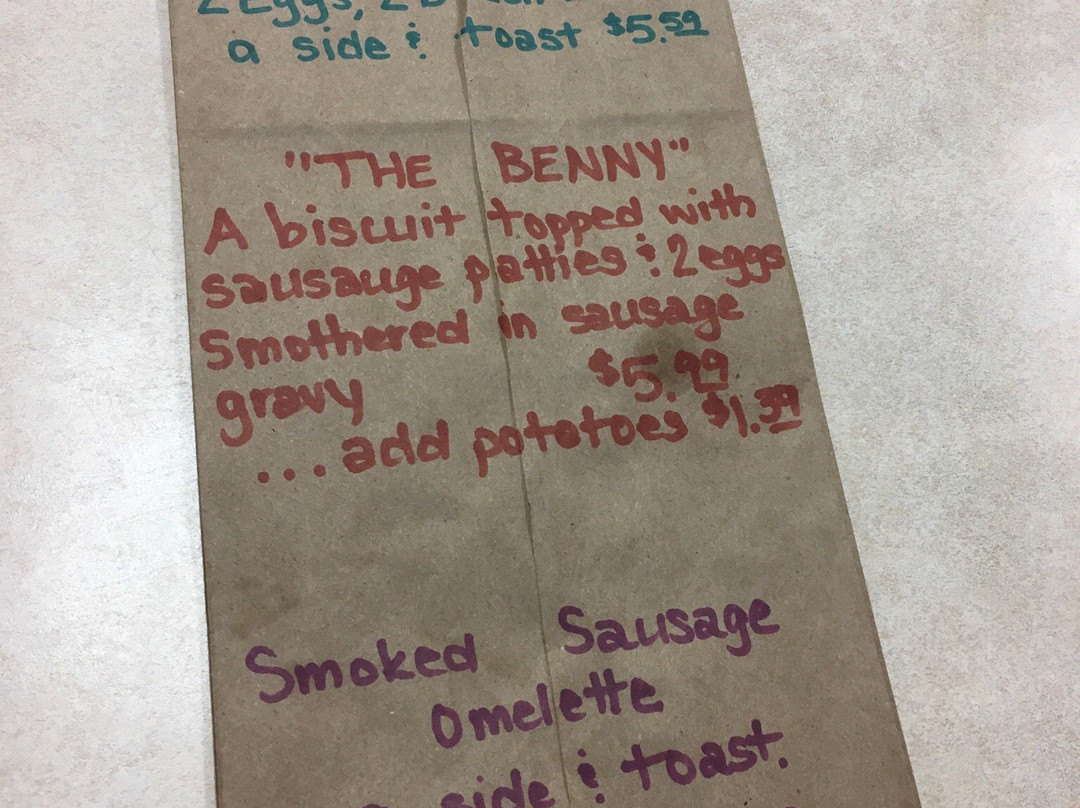 2 Eggs, 2
a side & toast $5.59
"THE BENNY"
A biscuit topped with
sausauge patties & 2 eggs
Smothered in sausage
gravy $5.99
...add potatoes $1.39
Smoked Sausage
Omelette
side & toast.